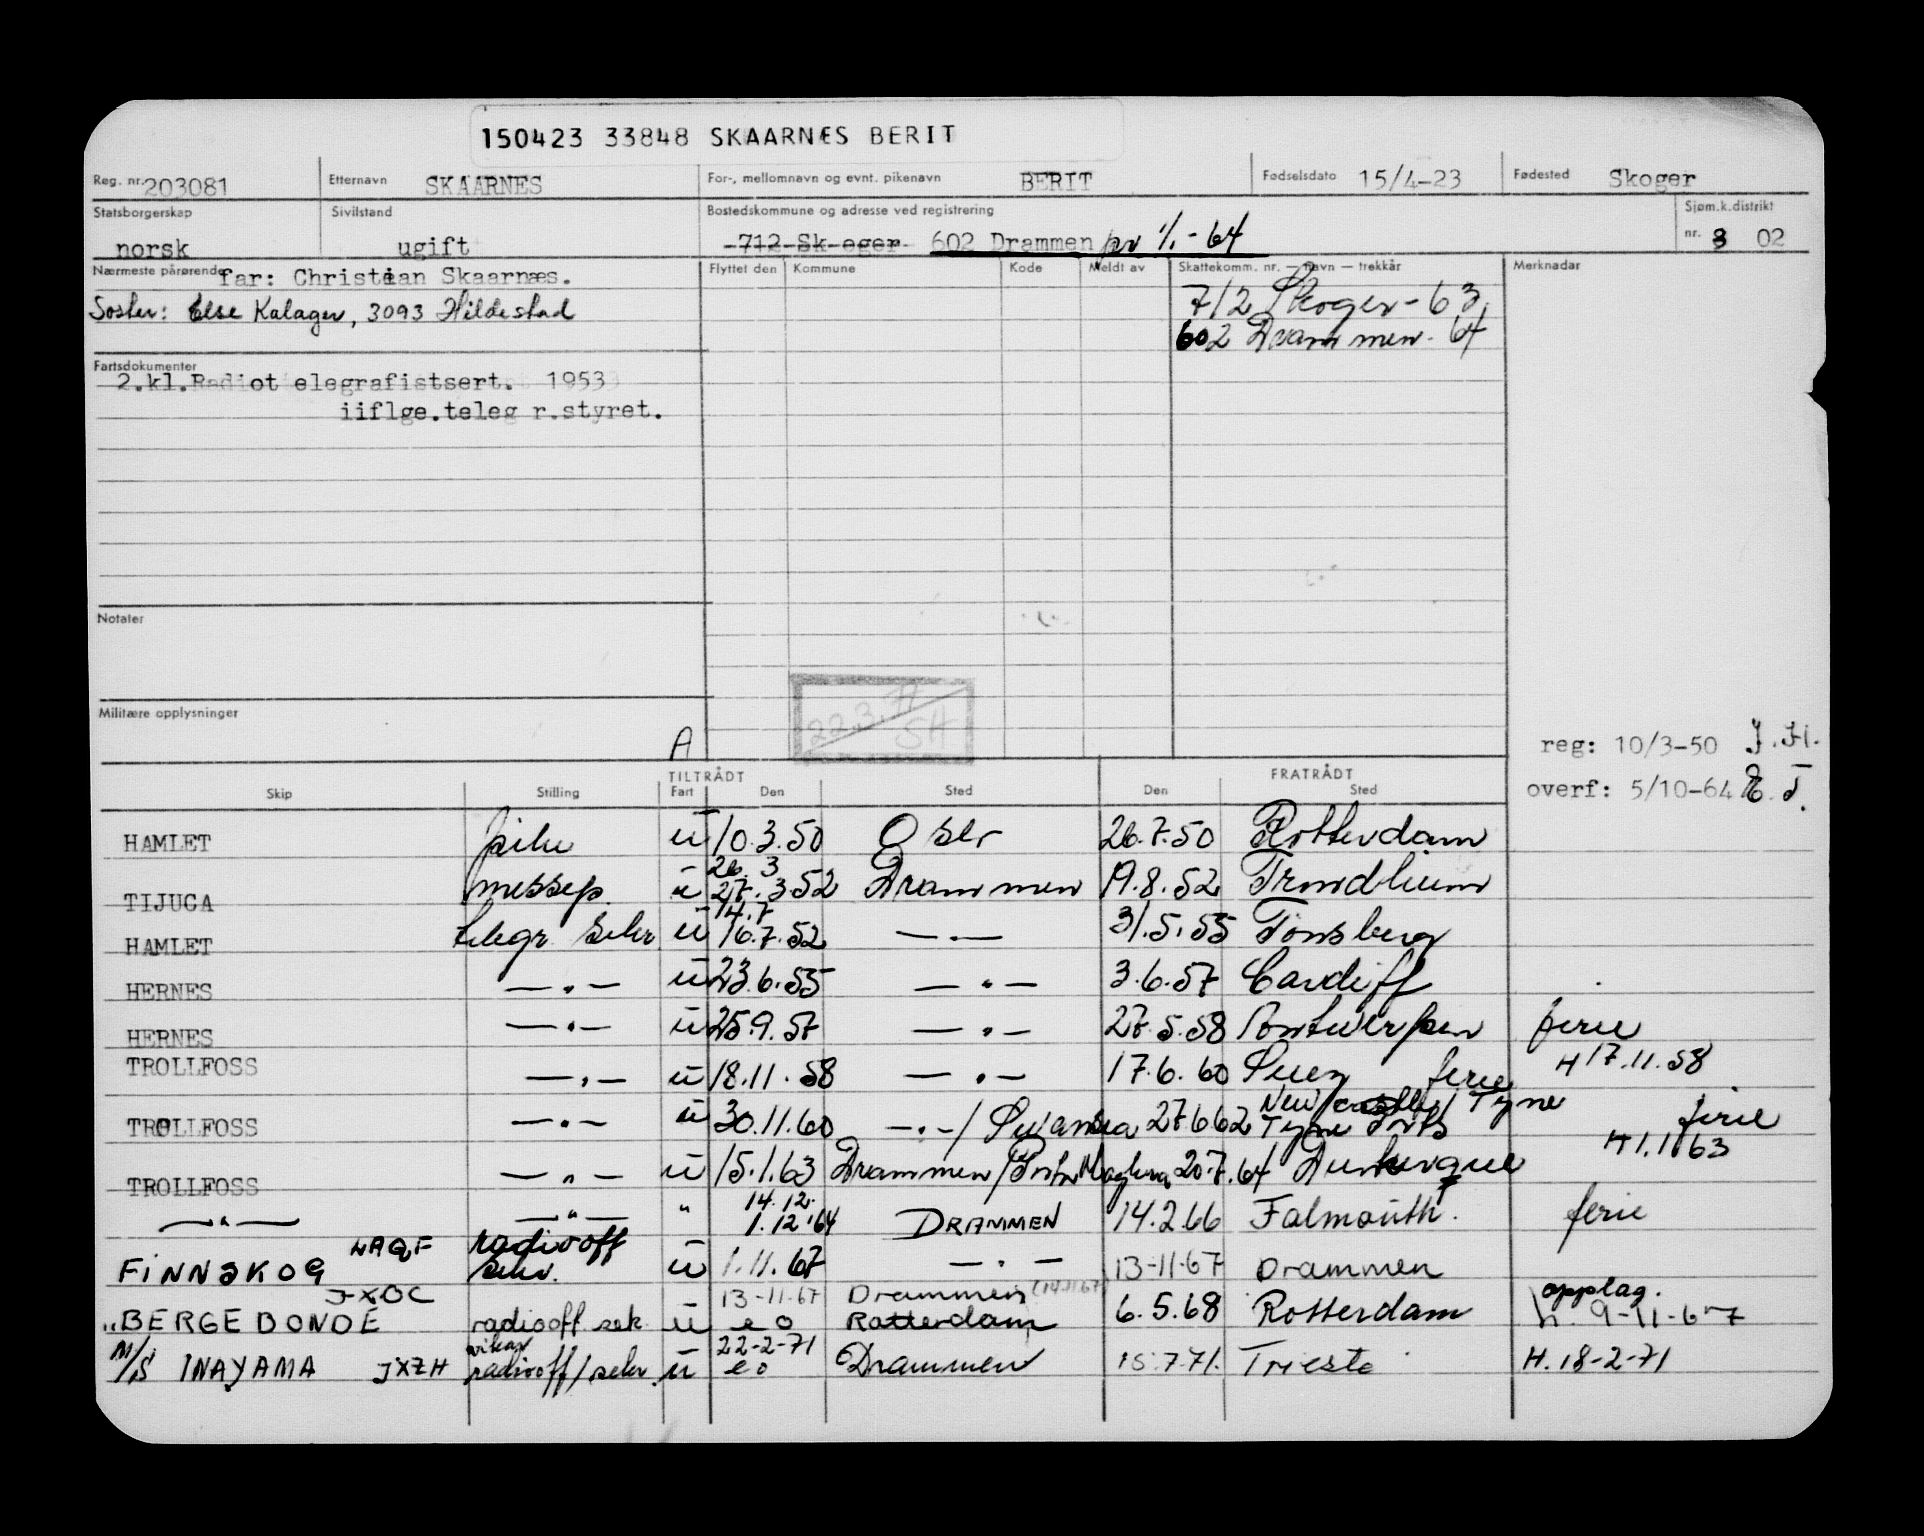 150423 33848 SKAARNÆS BERIT
Reg. nr. 203081 Etternavn SKAARNES For-, mellomnavn og evnt. pikenavn BERIT Fødselsdato 15/4-23 Fødested Skoger
Statsborgerskap norsk Sivilstand ugift Bostedskommune og adresse ved registrering 712 Sk oger 602 Drammen pr 1/1-64 Sjøm.k.distrikt nr. 3 02
Nærmeste pårørende far: Christian Skaarnæs. Flyttet den Kommune Kode Meldt av Skattekomm. nr. — navn — trekkår Merknadar
Søster: Else Kalager, 3093 Hildestad 712 Skoger - 63
602 Drammen - 64
Fartsdokumenter
2.kl.Radiot elegrafistsert. 1953
iiflge.teleg r.styret.
Notater
22.3.77 SH
Militære opplysninger
A
reg: 10/3-50 J.H.
overf: 5/10-64 E.T.
TILTRÅDT FRATRÅDT
Skip Stilling Fart Den Sted Den Sted
HAMLET pike u 10.3.50 Oslo 26.7.50 Rotterdam
26. 3
TIJUCA messep. u 27.3.52 Drammen 19.8.52 Trondheim
14.7
HAMLET telegr. sekr u 16.7.52 — . — 31.5.55 Tønsberg
HERNES — . — u 23.6.55 — " — 3.6.57 Cardiff
HERNES — . — u 25.9.57 — . — 27.5.58 Antwerpen ferie
H 17.11.58
TROLLFOSS — . — u 18.11.58 — . — 17.6.60 Suez ferie
New castle / Tyne
TROLLFOSS — . — u 30.11.60 — . — / Swansea 27.6.62 Tyne Ports ferie
H 1.1.63
TROLLFOSS — " — u 15.1.63 Drammen / 20.7.64 Dunkerque
14.12.
— " — — " — " 1.12.64 DRAMMEN 14.2.66 Falmouth. ferie
FINNSKOG LAQF radiooff sekr. u 1.11.67 — . — 13-11-67 Drammen
JXOC 13-11-67 Drammen (14.11.67) opplag.
"BERGEBONDE radiooff sek u e o Rotterdam 6.5.68 Rotterdam h. 9-11-67
vikar 22-2-71
M/S INAYAMA JXZH radiooff/sekr. u e o Drammen 15.7.71. Trieste H. 18-2-71